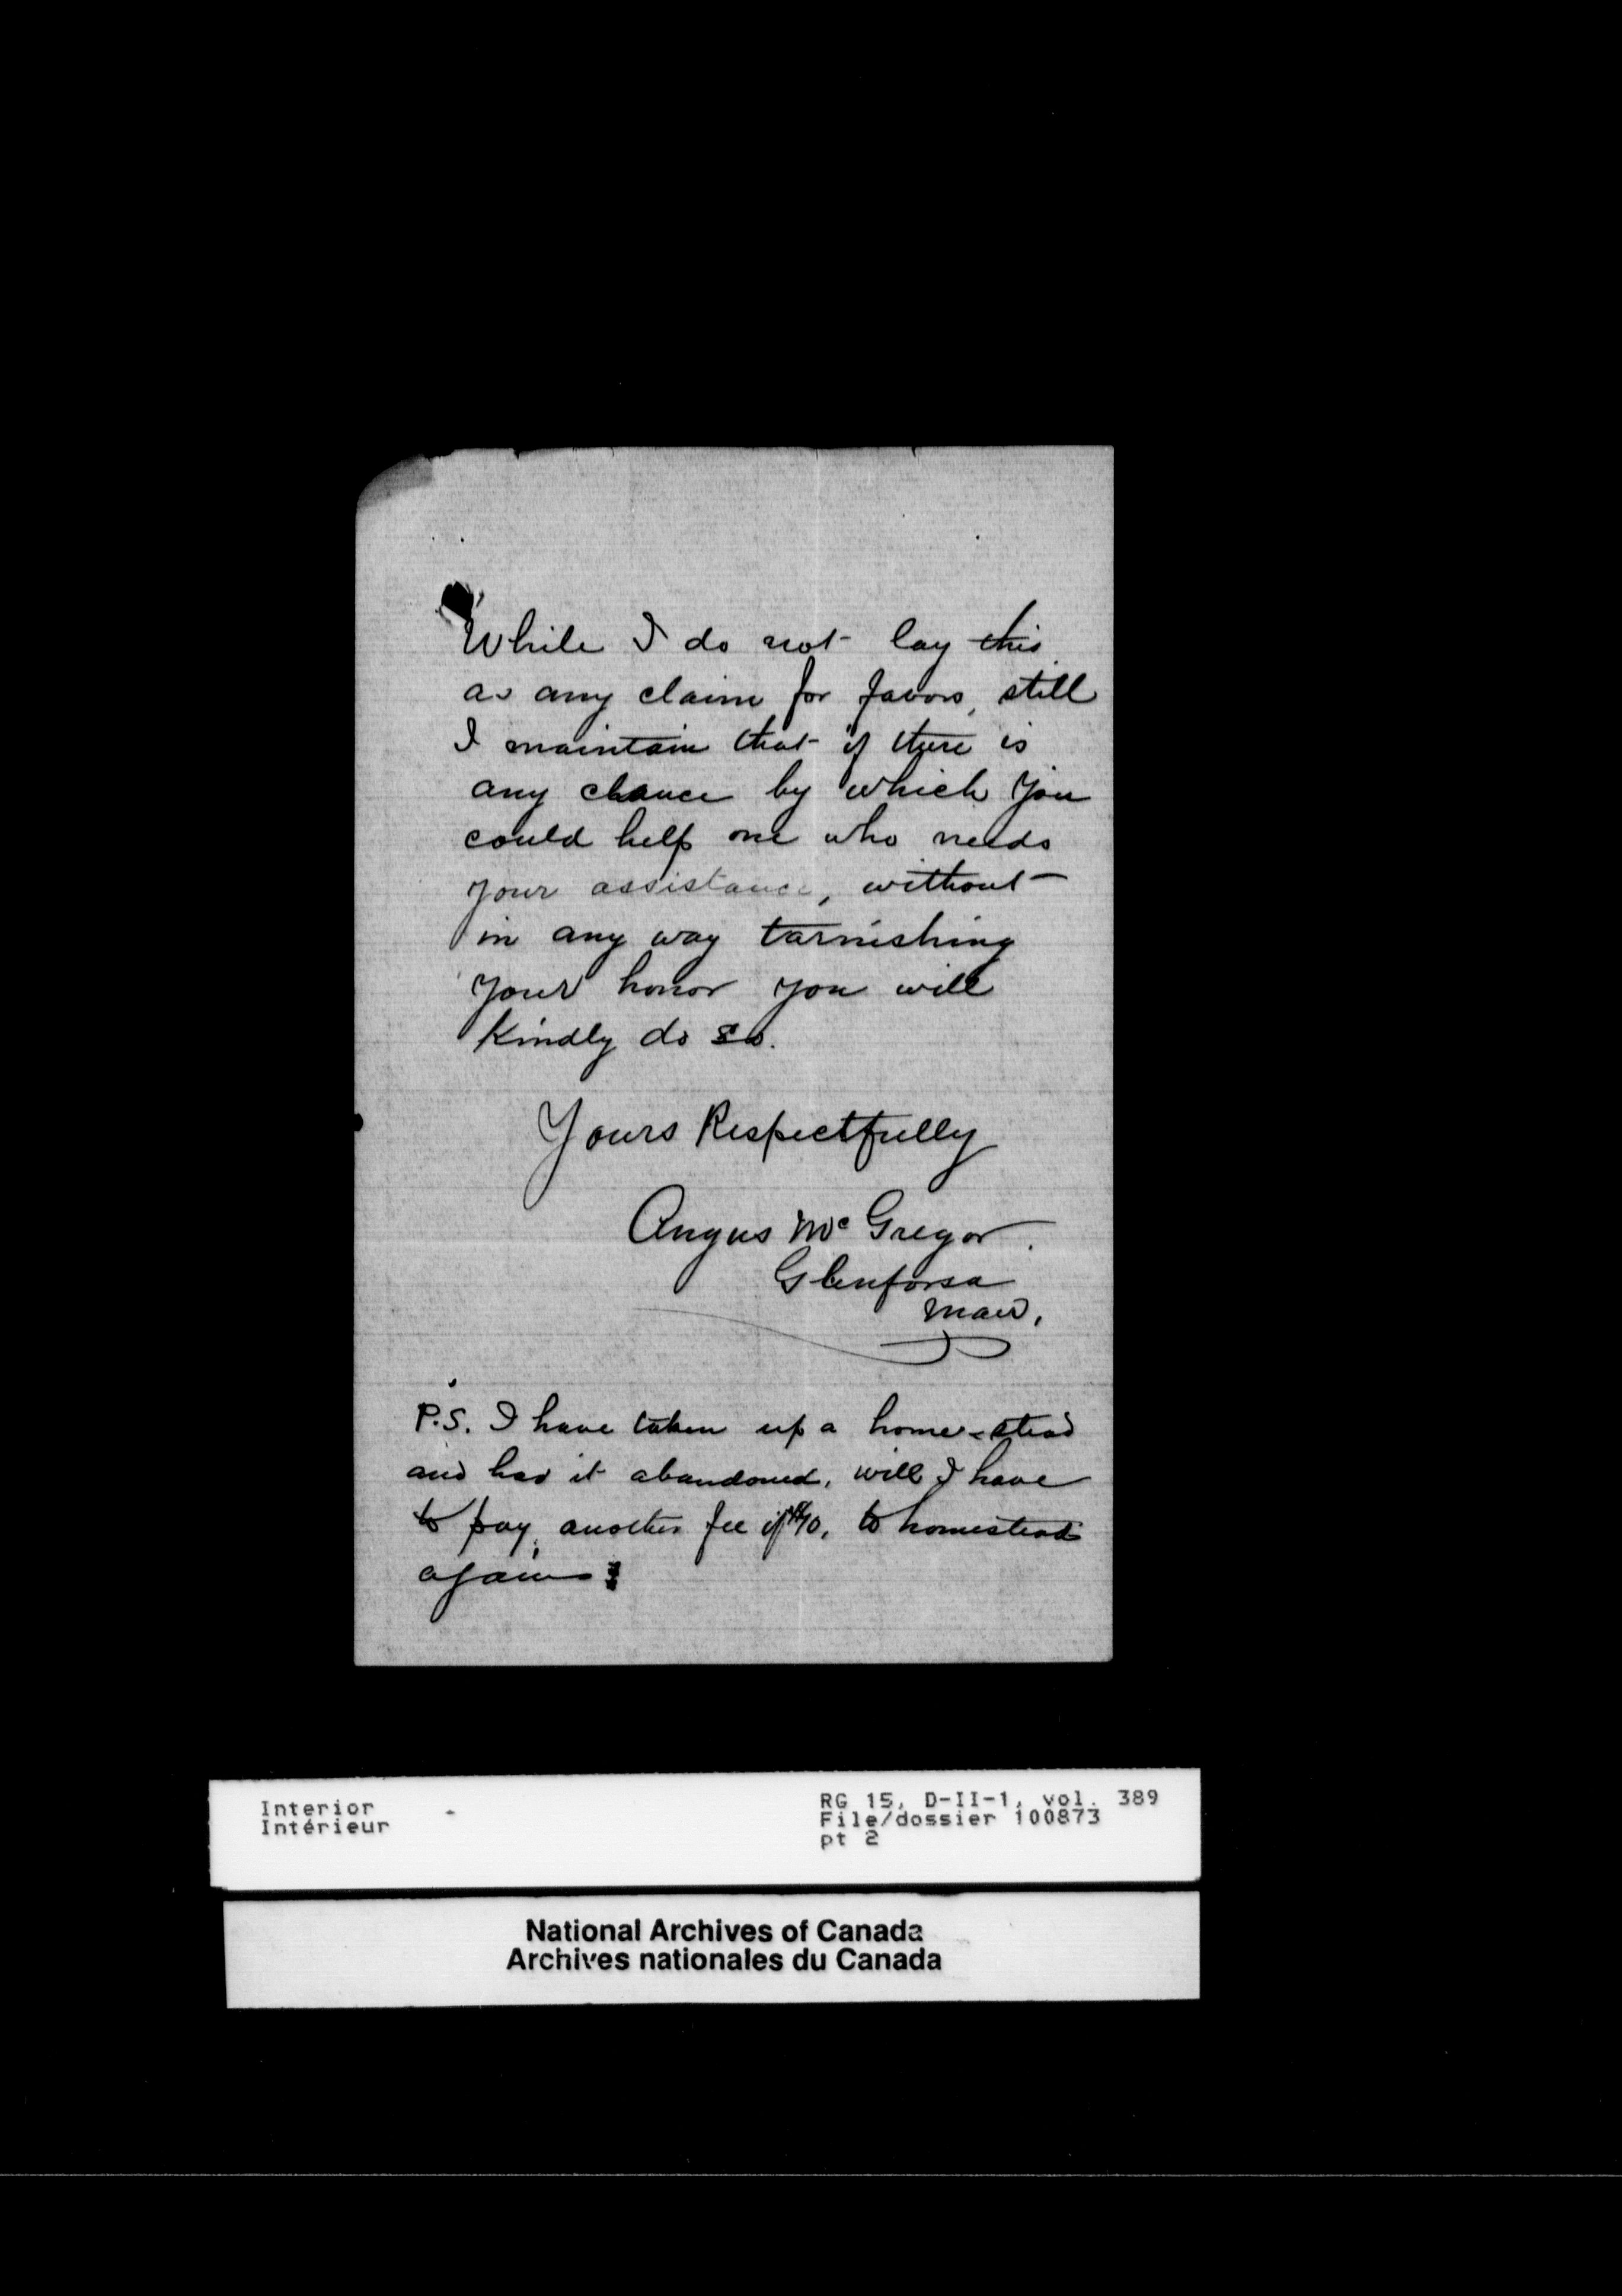 While I do not lay this
as any claim for favors, still
I maintain that if there is
any chance by which you
could help one who needs
your assistance, without
in any way tarnishing
your honor you will
kindly do so.
Yours Respectfully
Angus McGregor.
Glenforsa
Man.
P.S. I have taken up a home-stead
and had it abandoned, will I have
to pay another fee of $10, to homestead
again?
Interior
Intérieur
RG 15, D-II-1, vol. 389
File/dossier 100873
pt 2
National Archives of Canada
Archives nationales du Canada